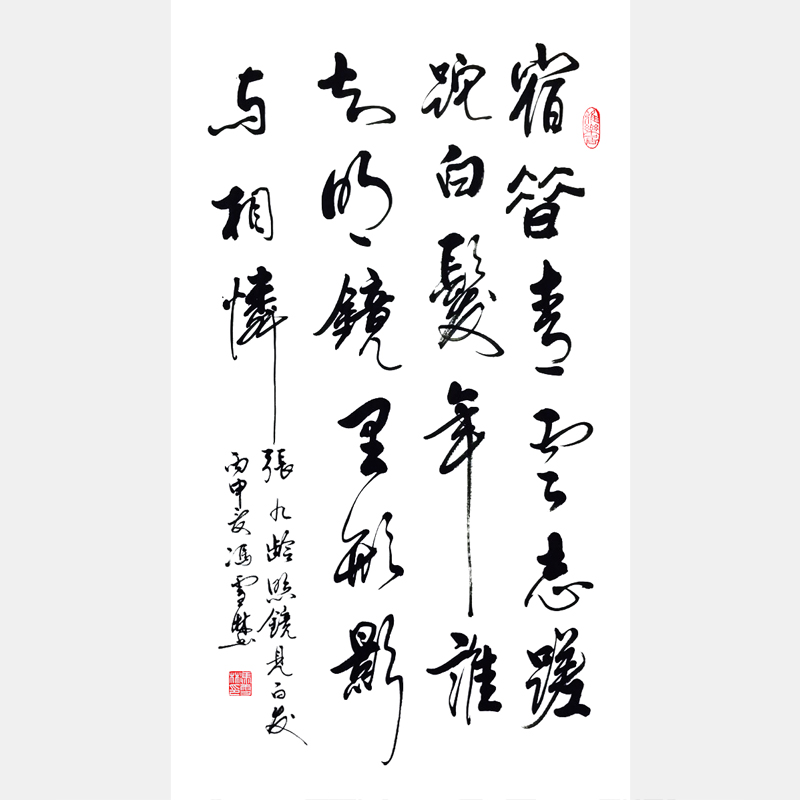 宿昔青雲志蹉
跎白髮年誰
知明鏡里形影
与相憐
張九齡照鏡見白发
丙申夏馮雪